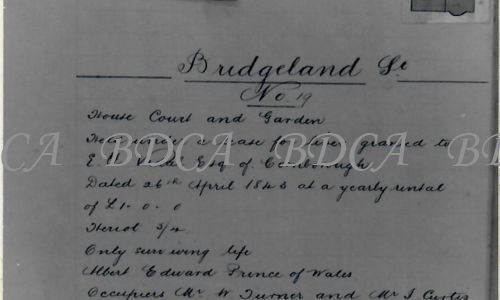 Bridgeland St
No. 19
House Court and Garden
Held under a lease for lives granted to
E. U. Vidal Esq of Cornborough
Dated 26th April 1843 at a yearly rental
of £1 - 0 - 0
Heriot 3/4
Only surviving life
Albert Edward Prince of Wales
Occupiers Mr W Turner and Mr J Curtis
BDCA BDCA BD